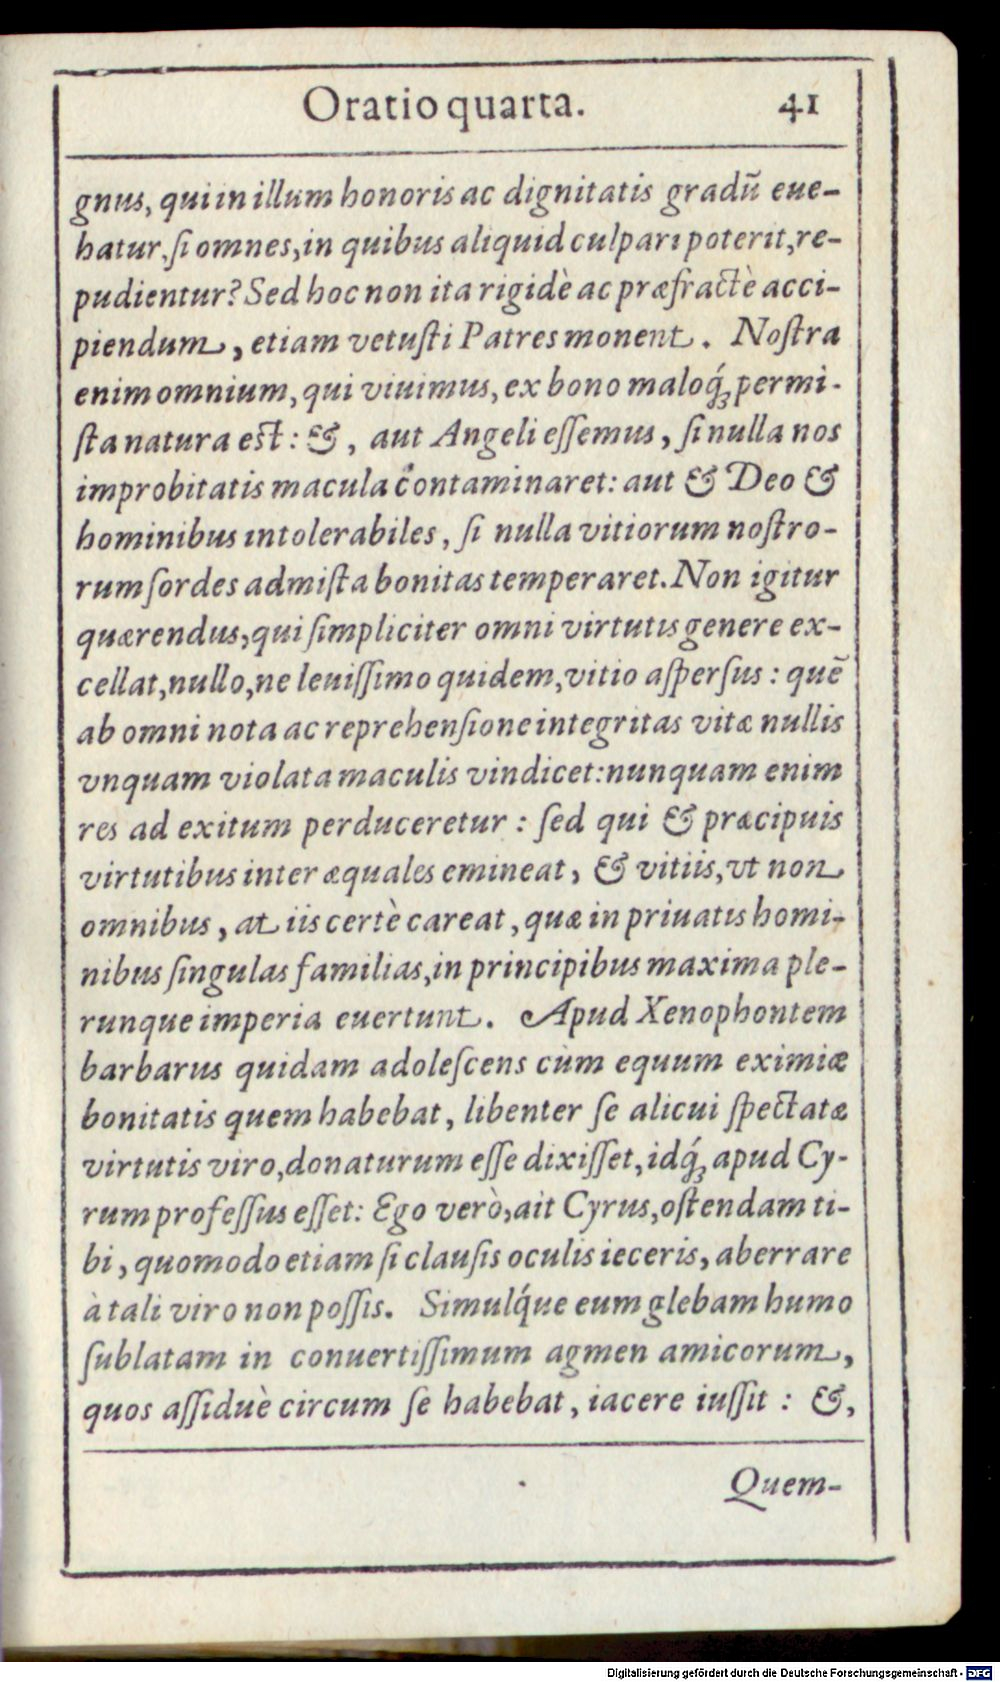 Oratio quarta. 41
gnus, qui in illum honoris ac dignitatis gradũ eue-
hatur, ſi omnes, in quibus aliquid culpari poterit, re-
pudientur? Sed hoc non ita rigidè ac præfractè acci-
piendum, etiam vetuſti Patres monent. Noſtra
enim omnium, qui viuimus, ex bono maloq́ꝫ permi-
ſta natura est: &, aut Angeli eſſemus, ſi nulla nos
improbitatis macula contaminaret: aut & Deo &
hominibus intolerabiles, ſi nulla vitiorum noſtro-
rum ſordes admiſta bonitas temperaret. Non igitur
quærendus, qui ſimpliciter omni virtutis genere ex-
cellat, nullo, ne leuiſſimo quidem, vitio aſperſus: quẽ
ab omni nota ac reprehenſione integritas vitæ nullis
vnquam violata maculis vindicet: nunquam enim
res ad exitum perduceretur: ſed qui & præcipuis
virtutibus inter æquales emineat, & vitiis, vt non
omnibus, at iis certè careat, quæ in priuatis homi-
nibus ſingulas familias, in principibus maxima ple-
runque imperia euertunt. Apud Xenophontem
barbarus quidam adoleſcens cùm equum eximiæ
bonitatis quem habebat, libenter ſe alicui ſpectatæ
virtutis viro, donaturum eſſe dixiſſet, idq́ꝫ apud Cy-
rum profeſſus eſſet: Ego verò, ait Cyrus, oſtendam ti-
bi, quomodo etiam ſi clauſis oculis ieceris, aberrare
à tali viro non poſſis. Simulq́ue eum glebam humo
ſublatam in conuertiſſimum agmen amicorum,
quos aſſiduè circum ſe habebat, iacere iuſſit: &,
Quem-
Digitalisierung gefördert durch die Deutsche Forschungsgemeinschaft - DFG